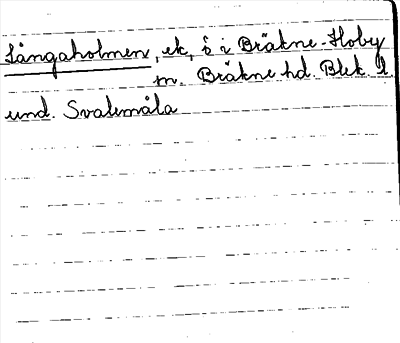 Långaholmen, ek, ö i Bräkne-Hoby
sn. Bräkne hd. Blek. l.
und. Svalemåla